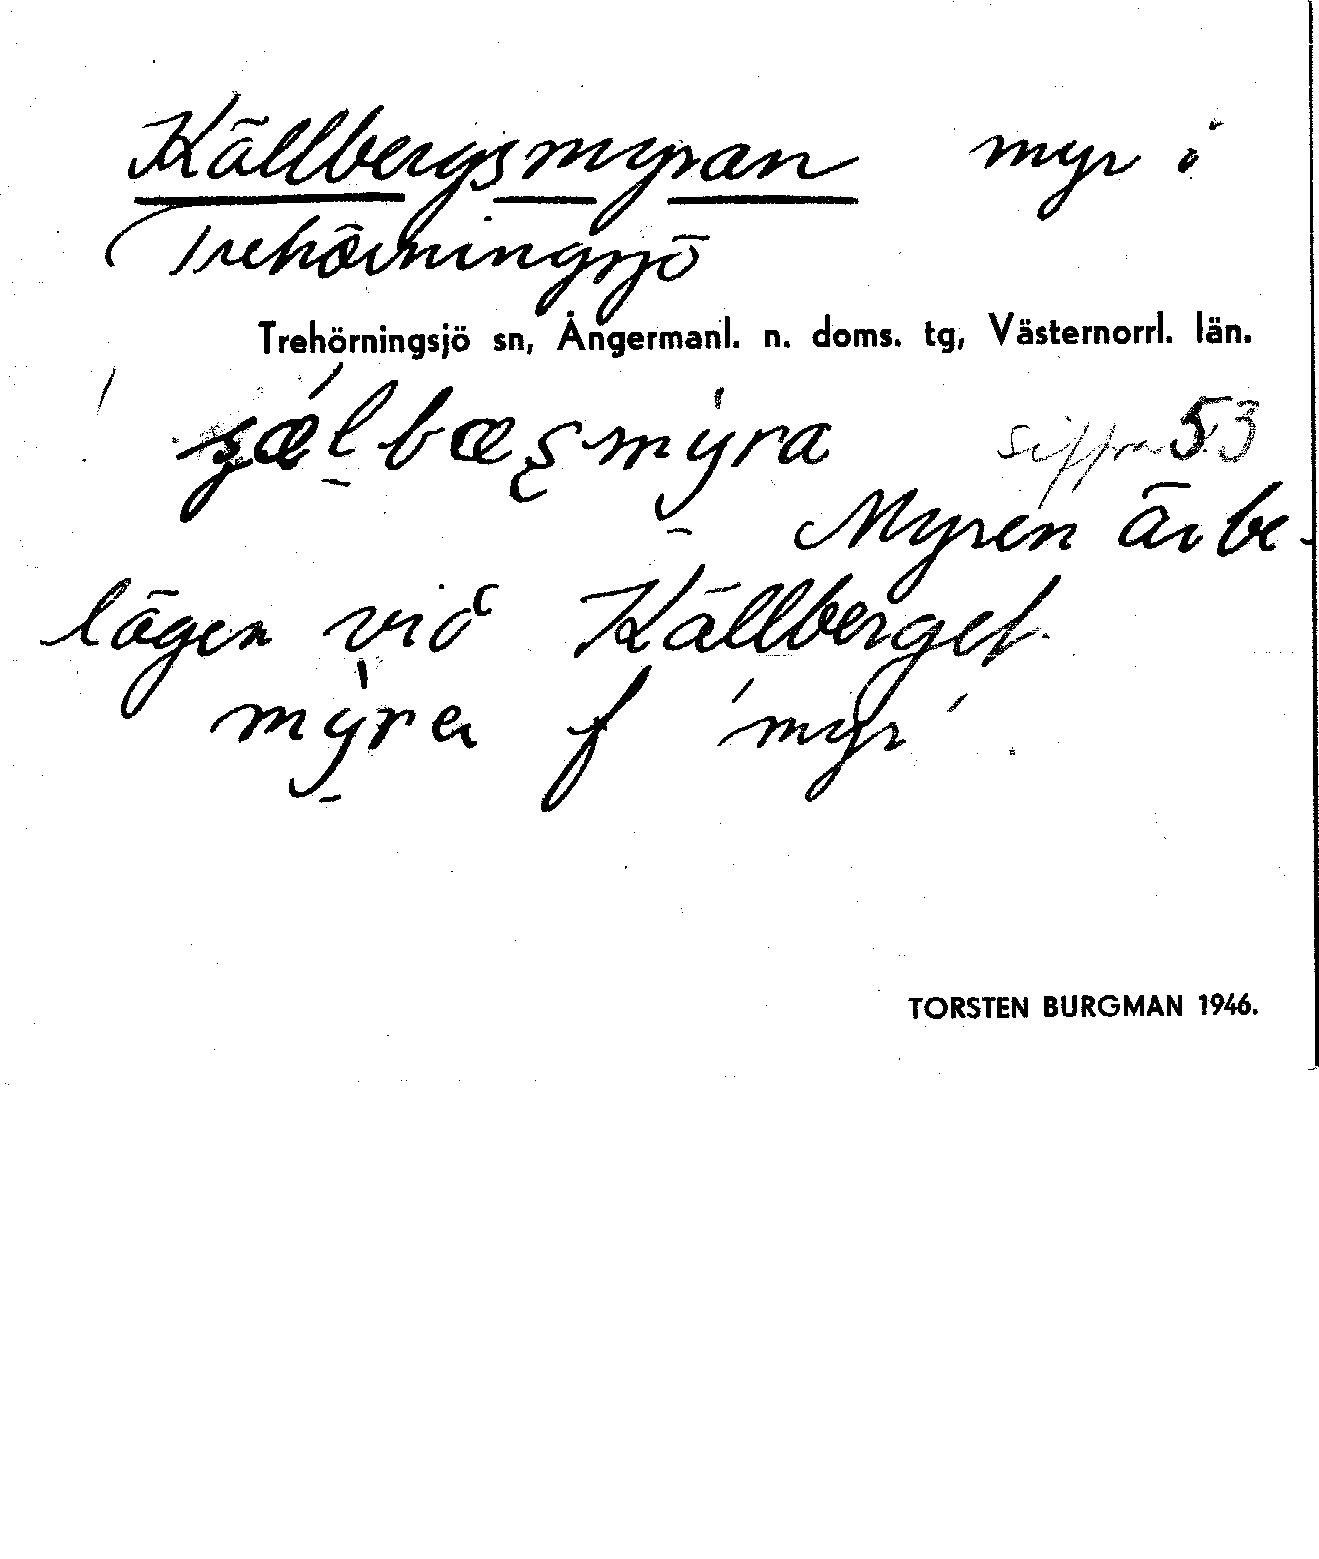 Källbergsmyran myr i
Trehörningsjö
Trehörningsjö sn, Ångermanl. n. doms. tg, Västernorrl. län.
siffra 53
Myren är be-
lägen vid Källberget
myra f 'myr'.
TORSTEN BURGMAN 1946.